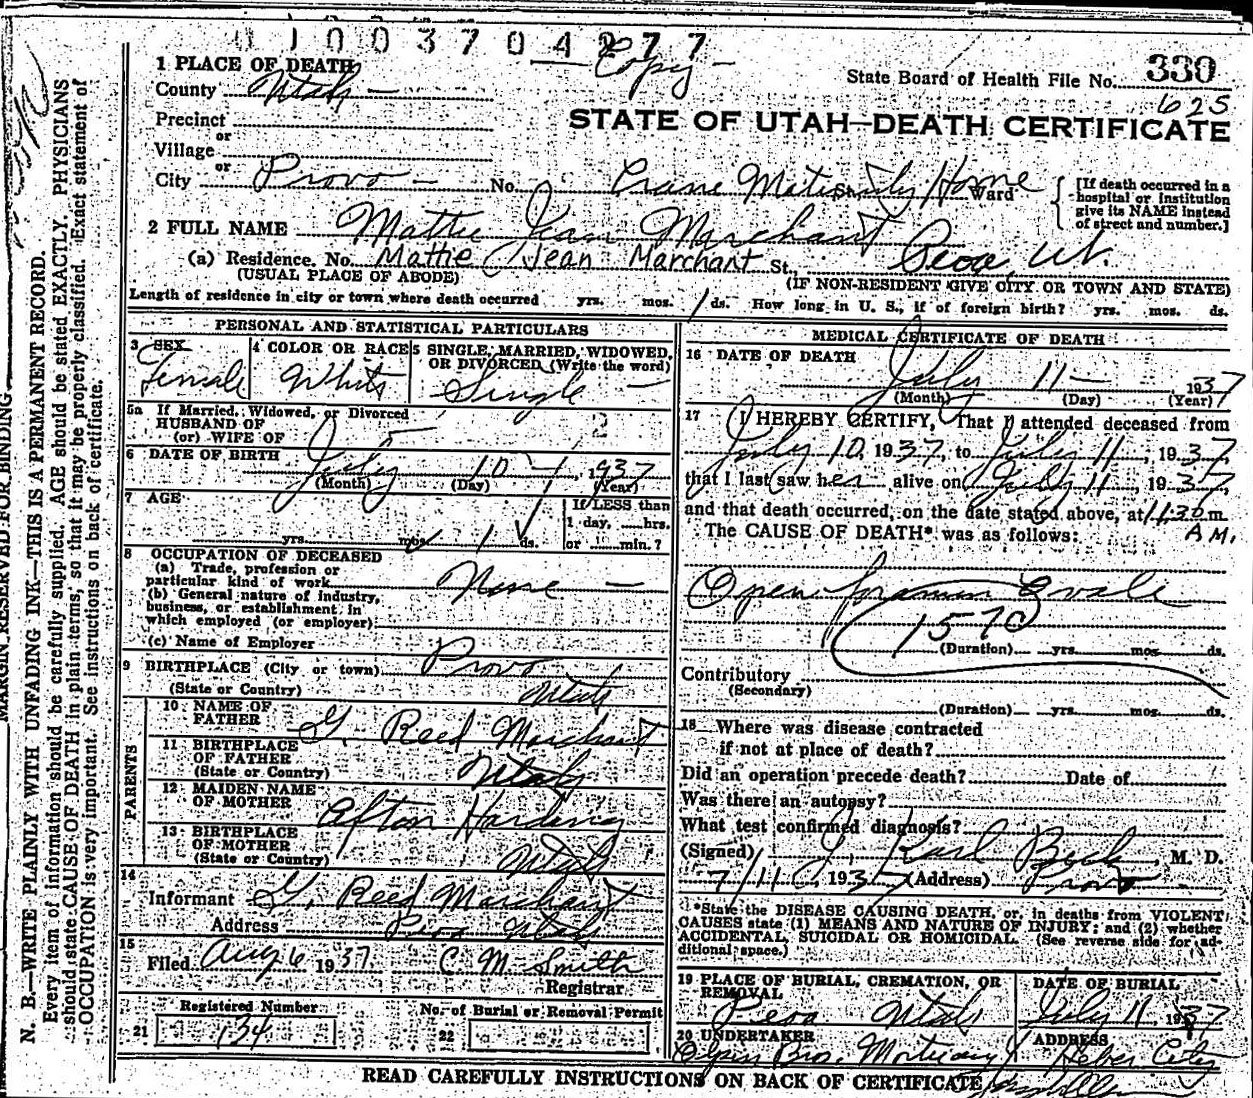 1003704277
Copy -
1 PLACE OF DEATH
County Utah -
State Board of Health File No. 330
625
Precinct
or
Village
or
STATE OF UTAH—DEATH CERTIFICATE
City Provo - No. Crane Maternity Home St. Ward
[If death occurred in a hospital or institution give its NAME instead of street and number.]
2 FULL NAME Mattie Jean Marchant
(a) Residence. No. Mattie Jean Marchant St. Peoa, Ut.
(USUAL PLACE OF ABODE) (IF NON-RESIDENT GIVE CITY OR TOWN AND STATE)
Length of residence in city or town where death occurred yrs. mos. 1 ds. How long in U. S., if of foreign birth? yrs. mos. ds.
PERSONAL AND STATISTICAL PARTICULARS
3 SEX Female
4 COLOR OR RACE White
5 SINGLE, MARRIED, WIDOWED, OR DIVORCED (Write the word) Single -
5a If Married, Widowed, or Divorced
HUSBAND OF
(or) WIFE OF
6 DATE OF BIRTH July 10 - 1937
(Month) (Day) (Year)
7 AGE
yrs. mos. 1 ds.
If LESS than
1 day, hrs.
or min.?
8 OCCUPATION OF DECEASED
(a) Trade, profession or
particular kind of work None -
(b) General nature of industry,
business, or establishment in
which employed (or employer)
(c) Name of Employer
9 BIRTHPLACE (City or town) Provo
(State or Country) Utah
PARENTS
10 NAME OF FATHER G. Reed Marchant
11 BIRTHPLACE OF FATHER
(State or Country) Utah
12 MAIDEN NAME OF MOTHER Afton
13 BIRTHPLACE OF MOTHER
(State or Country) Utah
14
Informant G. Reed Marchant
Address Peoa Utah
15
Filed Aug 6 1937 C. M. Smith
Registrar
Registered Number
21 134
No. of Burial or Removal Permit
22
MEDICAL CERTIFICATE OF DEATH
16 DATE OF DEATH
July 11 - 1937
(Month) (Day) (Year)
17 I HEREBY CERTIFY, That I attended deceased from
July 10, 1937, to July 11, 1937,
that I last saw her alive on July 11, 1937,
and that death occurred, on the date stated above, at 11:30 m.
A M.
The CAUSE OF DEATH* was as follows:
Open foramen Ovale
(Duration) yrs. mos. ds.
Contributory
(Secondary)
(Duration) yrs. mos. ds.
18 Where was disease contracted
if not at place of death?
Did an operation precede death? Date of
Was there an autopsy?
What test confirmed diagnosis?
(Signed) Karl Beck, M. D.
7/11, 1937 (Address) Provo
*State the DISEASE CAUSING DEATH, or, in deaths from VIOLENT
CAUSES state (1) MEANS AND NATURE OF INJURY; and (2) whether
ACCIDENTAL, SUICIDAL OR HOMICIDAL. (See reverse side for ad-
ditional space.)
19 PLACE OF BURIAL, CREMATION, OR REMOVAL
Peoa Utah
DATE OF BURIAL
July 11, 1937
20 UNDERTAKER
Olpin Bro. Mortuary
ADDRESS
Heber City
READ CAREFULLY INSTRUCTIONS ON BACK OF CERTIFICATE
MARGIN RESERVED FOR BINDING
N. B.—WRITE PLAINLY WITH UNFADING INK—THIS IS A PERMANENT RECORD.
Every item of information should be carefully supplied. AGE should be stated EXACTLY. PHYSICIANS
should state CAUSE OF DEATH in plain terms, so that it may be properly classified. Exact statement of
OCCUPATION is very important. See instructions on back of certificate.